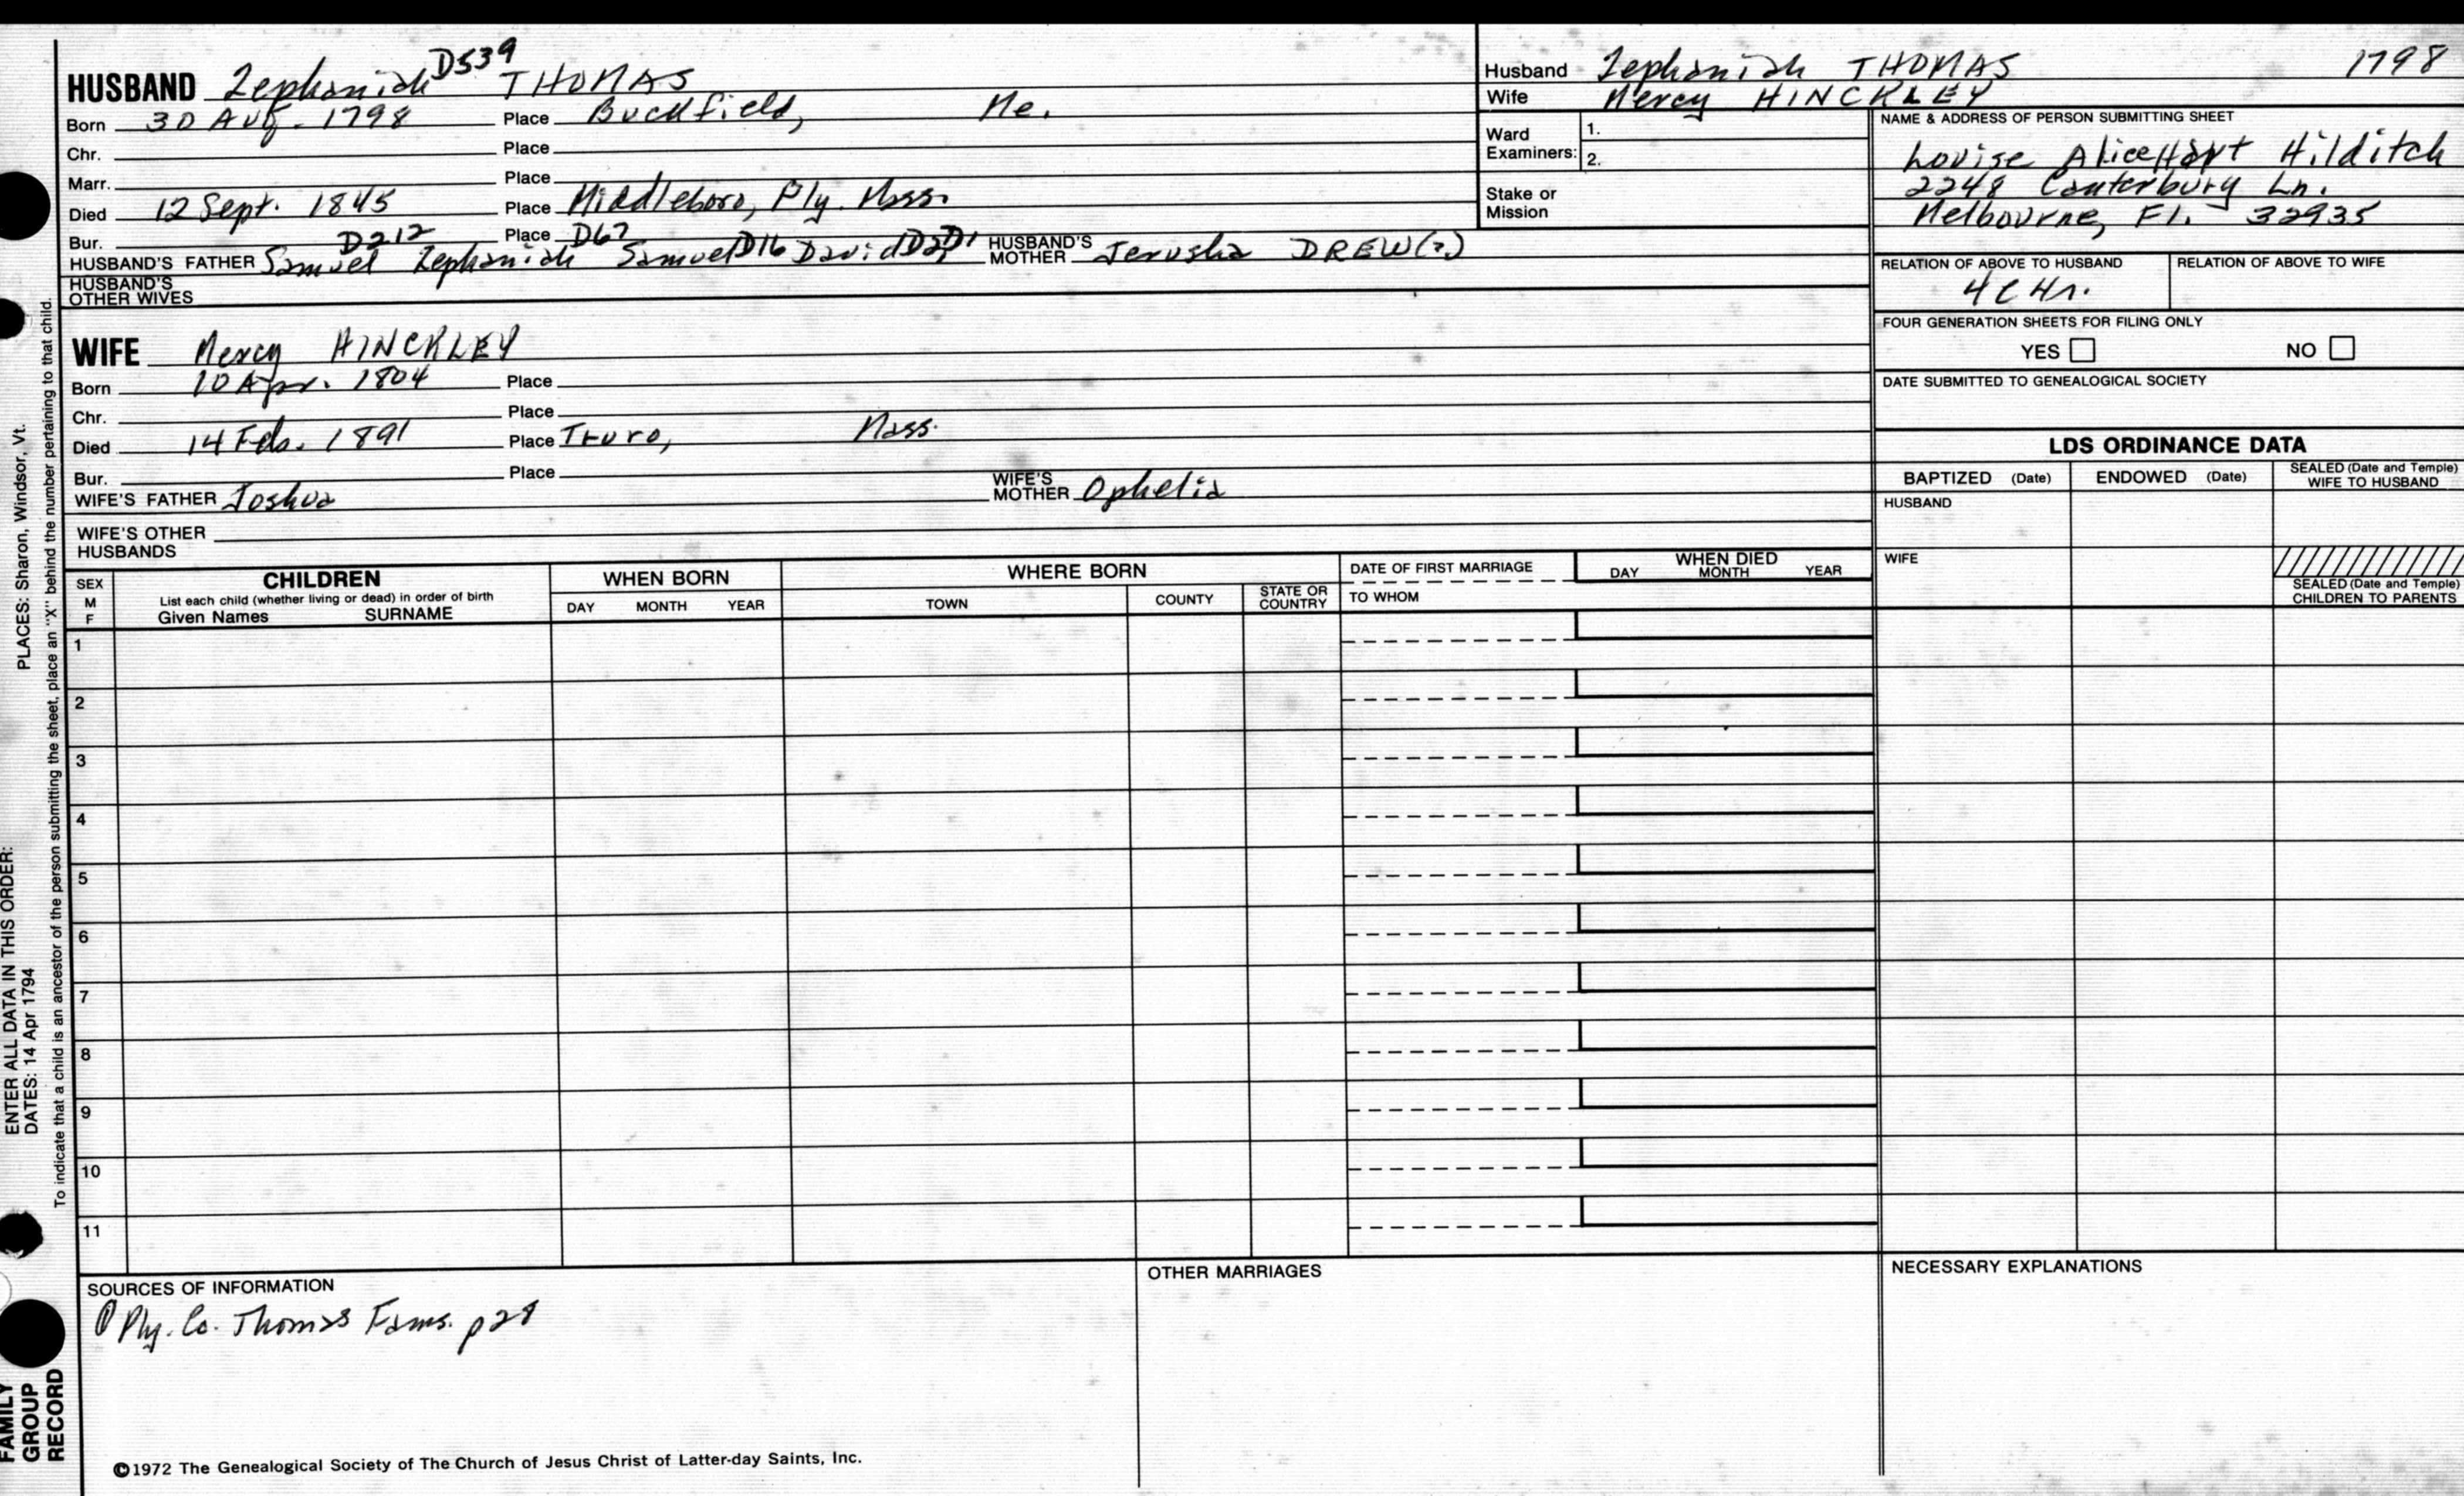 HUSBAND Zephaniah D539 THOMAS
Born 30 Aug. 1798 Place Buckfield, Me.
Chr. Place
Marr. Place
Died 12 Sept. 1845 Place Middleboro, Ply. Mass.
Bur. Place
HUSBAND'S FATHER Samuel D212 Zephaniah D67 Samuel D16 David D2 D1 HUSBAND'S MOTHER Jerusha DREW(?)
HUSBAND'S OTHER WIVES
WIFE Mercy HINCKLEY
Born 10 Apr. 1804 Place
Chr. Place
Died 14 Feb. 1891 Place Truro, Mass.
Bur. Place
WIFE'S FATHER Joshua WIFE'S MOTHER Ophelia
WIFE'S OTHER HUSBANDS
Husband Zephaniah THOMAS 1798
Wife Mercy HINCKLEY
Ward Examiners: 1.
2.
Stake or Mission
NAME & ADDRESS OF PERSON SUBMITTING SHEET
Louise Alice Hart Hilditch
2248 Canterbury Ln.
Melbourne, Fl. 32935
RELATION OF ABOVE TO HUSBAND RELATION OF ABOVE TO WIFE
4C4r.
FOUR GENERATION SHEETS FOR FILING ONLY
YES NO
DATE SUBMITTED TO GENEALOGICAL SOCIETY
LDS ORDINANCE DATA
BAPTIZED (Date) ENDOWED (Date) SEALED (Date and Temple) WIFE TO HUSBAND
HUSBAND
WIFE
SEALED (Date and Temple) CHILDREN TO PARENTS
SEX M F CHILDREN
List each child (whether living or dead) in order of birth
Given Names SURNAME
WHEN BORN
DAY MONTH YEAR
WHERE BORN
TOWN COUNTY STATE OR COUNTRY
DATE OF FIRST MARRIAGE
TO WHOM
WHEN DIED
DAY MONTH YEAR
1
2
3
4
5
6
7
8
9
10
11
SOURCES OF INFORMATION
① Ply. Co. Thomas Fams. p28
OTHER MARRIAGES
NECESSARY EXPLANATIONS
©1972 The Genealogical Society of The Church of Jesus Christ of Latter-day Saints, Inc.
FAMILY GROUP RECORD
ENTER ALL DATA IN THIS ORDER:
DATES: 14 Apr 1794
PLACES: Sharon, Windsor, Vt.
To indicate that a child is an ancestor of the person submitting the sheet, place an "X" behind the number pertaining to that child.